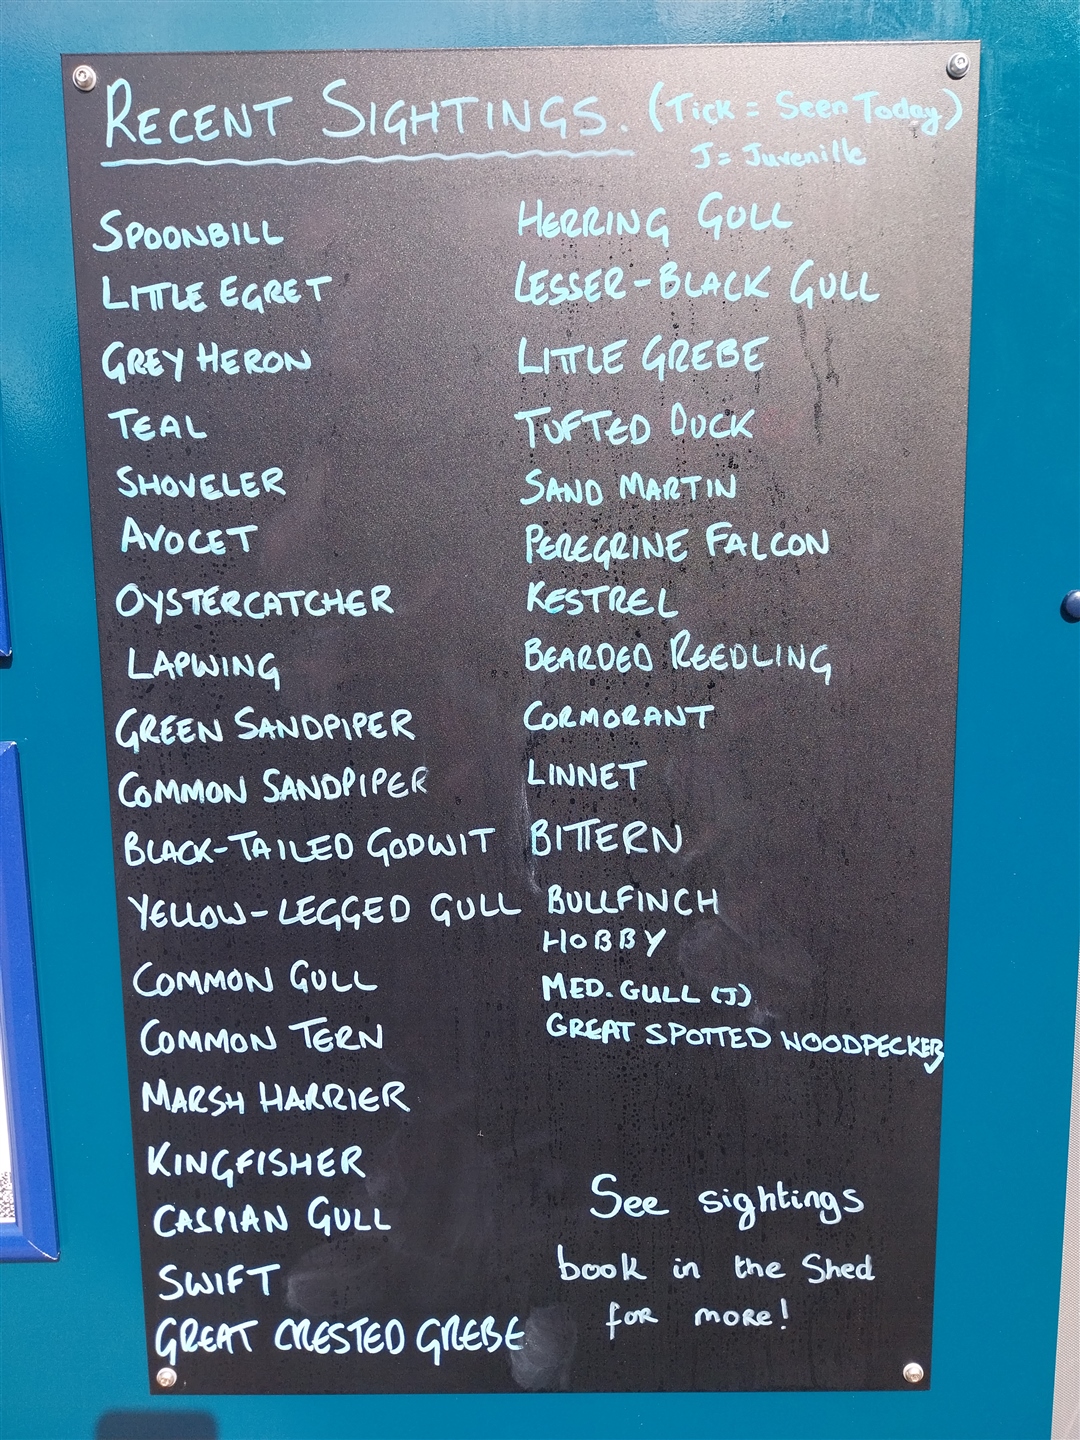 RECENT SIGHTINGS. (Tick = Seen Today)
J = Juvenille
SPOONBILL
LITTLE EGRET
GREY HERON
TEAL
SHOVELER
AVOCET
OYSTERCATCHER
LAPWING
GREEN SANDPIPER
COMMON SANDPIPER
BLACK-TAILED GODWIT
YELLOW-LEGGED GULL
COMMON GULL
COMMON TERN
MARSH HARRIER
KINGFISHER
CASPIAN GULL
SWIFT
GREAT CRESTED GREBE
HERRING GULL
LESSER-BLACK GULL
LITTLE GREBE
TUFTED DUCK
SAND MARTIN
PEREGRINE FALCON
KESTREL
BEARDED REEDLING
CORMORANT
LINNET
BITTERN
BULLFINCH
HOBBY
MED. GULL (J)
GREAT SPOTTED WOODPECKER
See sightings
book in the Shed
for more!